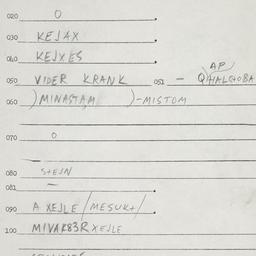 020 O
030 KEJAX
040 KEJXES
AP)
050 VIDER KRANK 051 –
060 )MINASTAM )-MISTOM
070 O
080 STEJN
081 —
090 A XEJLE /MESUK+/
100 MIVAK83R XEJLE